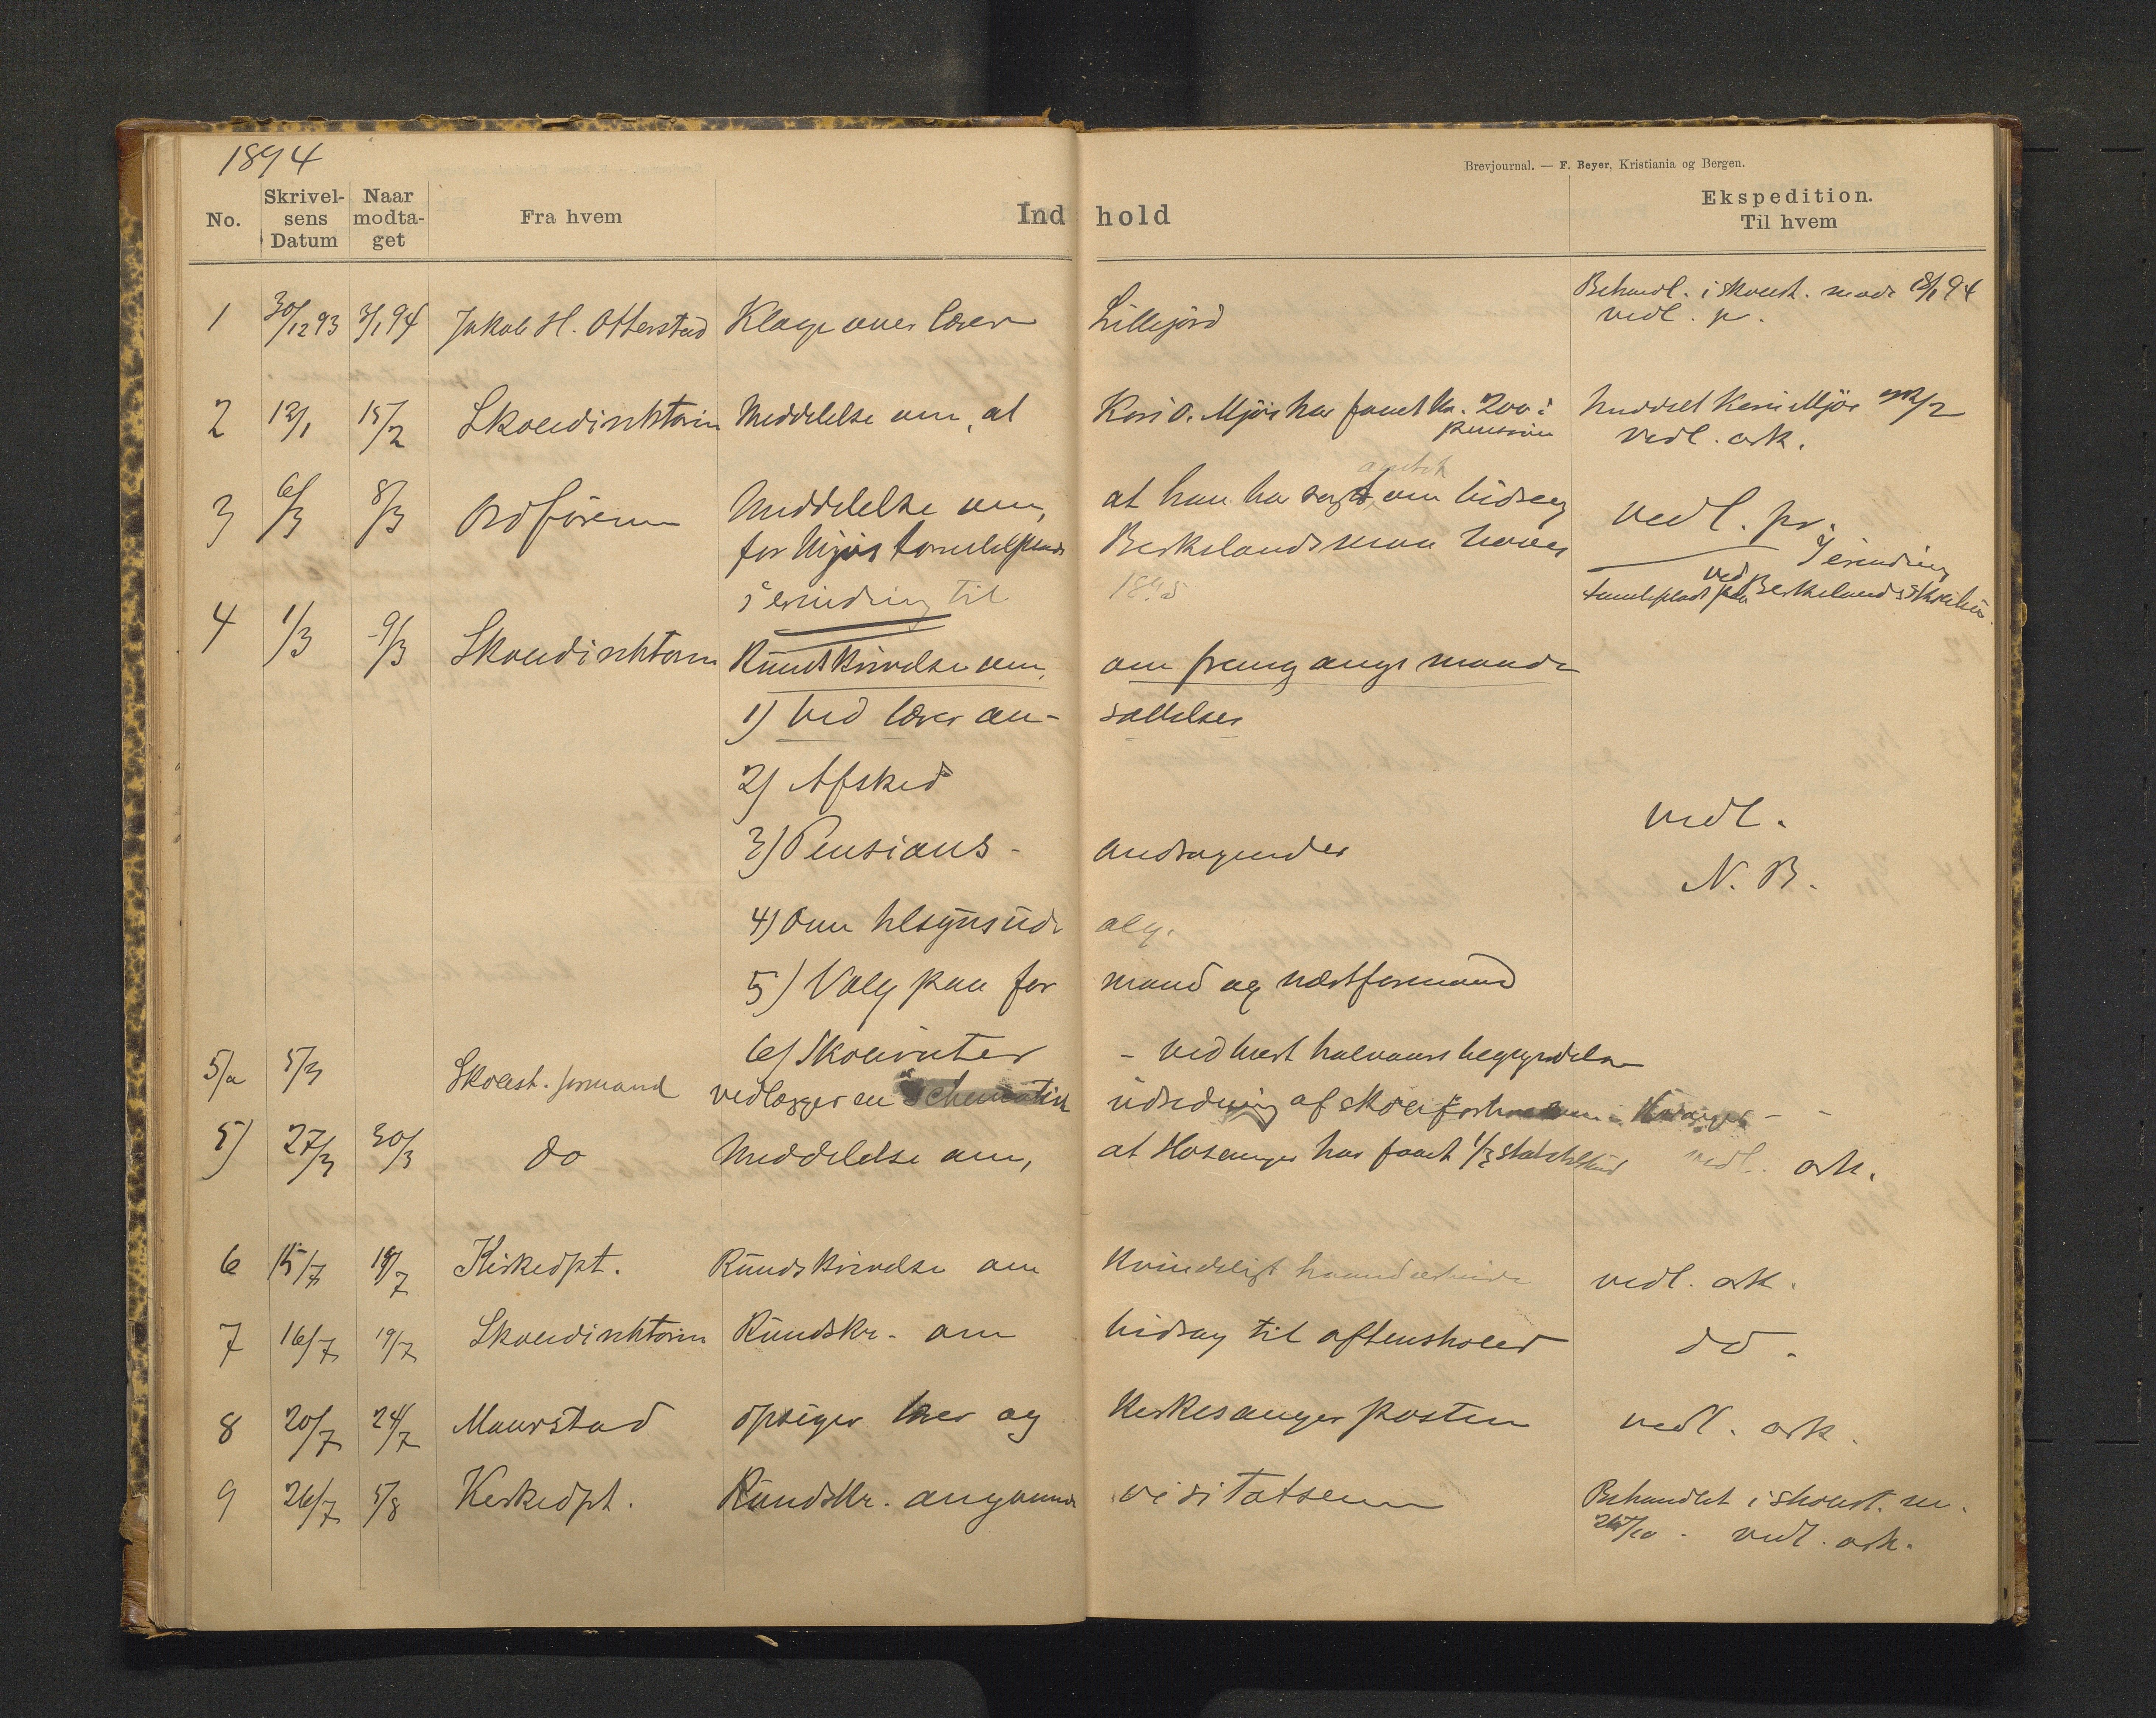 1894
Brevjournal. — F. Beyer, Kristiania og Bergen.
No. Skrivelsens Datum Naar modtaget Fra hvem Indhold Ekspedition. Til hvem
1 30/12 93 3/1 94 Jakob H. Otterstad Klage over lærer Lillejord Behandl. i skolest. møde 18/1 94
vedl. pr.
2 12/1 15/2 Skoledirektøren Meddelelse om, at Kari O. Mjøs har faaet kr. 200 i
pension
Meddelt Kari Mjøs /2
vedl. ark.
3 6/3 8/3 Ordføreren Meddelelse om, at han har søgt amtet om bidrag
for Mjøs Berkelands
i erindring til 1895
vedl. pr.
I erindring
ved Berkelands
4 1/3 9/3 Skoledirektøren Rundskrivelse om, om fremgangsmaade
1) Ved læreransættelser
2) Afsked
3) Pensions-andragender
4) Om tilsynsudvalg.
5) Valg paa formand og næstformand
6) Skoleruter - ved hvert halvaars begyndelse
vedl.
N. B.
5/a 5/3 Skolest. formand vedlægger en schematisk udredning af
5) 27/3 30/3 do Meddelelse om, at Hosanger har faaet 1/3 statstilskud vedl. ark.
6 15/7 18/7 Kirkedpt. Rundskrivelse om kvindeligt haandarbeide vedl. ark.
7 16/7 19/7 Skoledirektøren Rundskr. om bidrag til aftenskoler do.
8 20/7 24/7 Maurstad opsiger lærer og kirkesanger posten vedl. ark.
9 26/7 5/8 Kirkedpt. Rundskr. angaaende visitatsen Behandlet i skolest. m.
26/10 - vedl. ark.